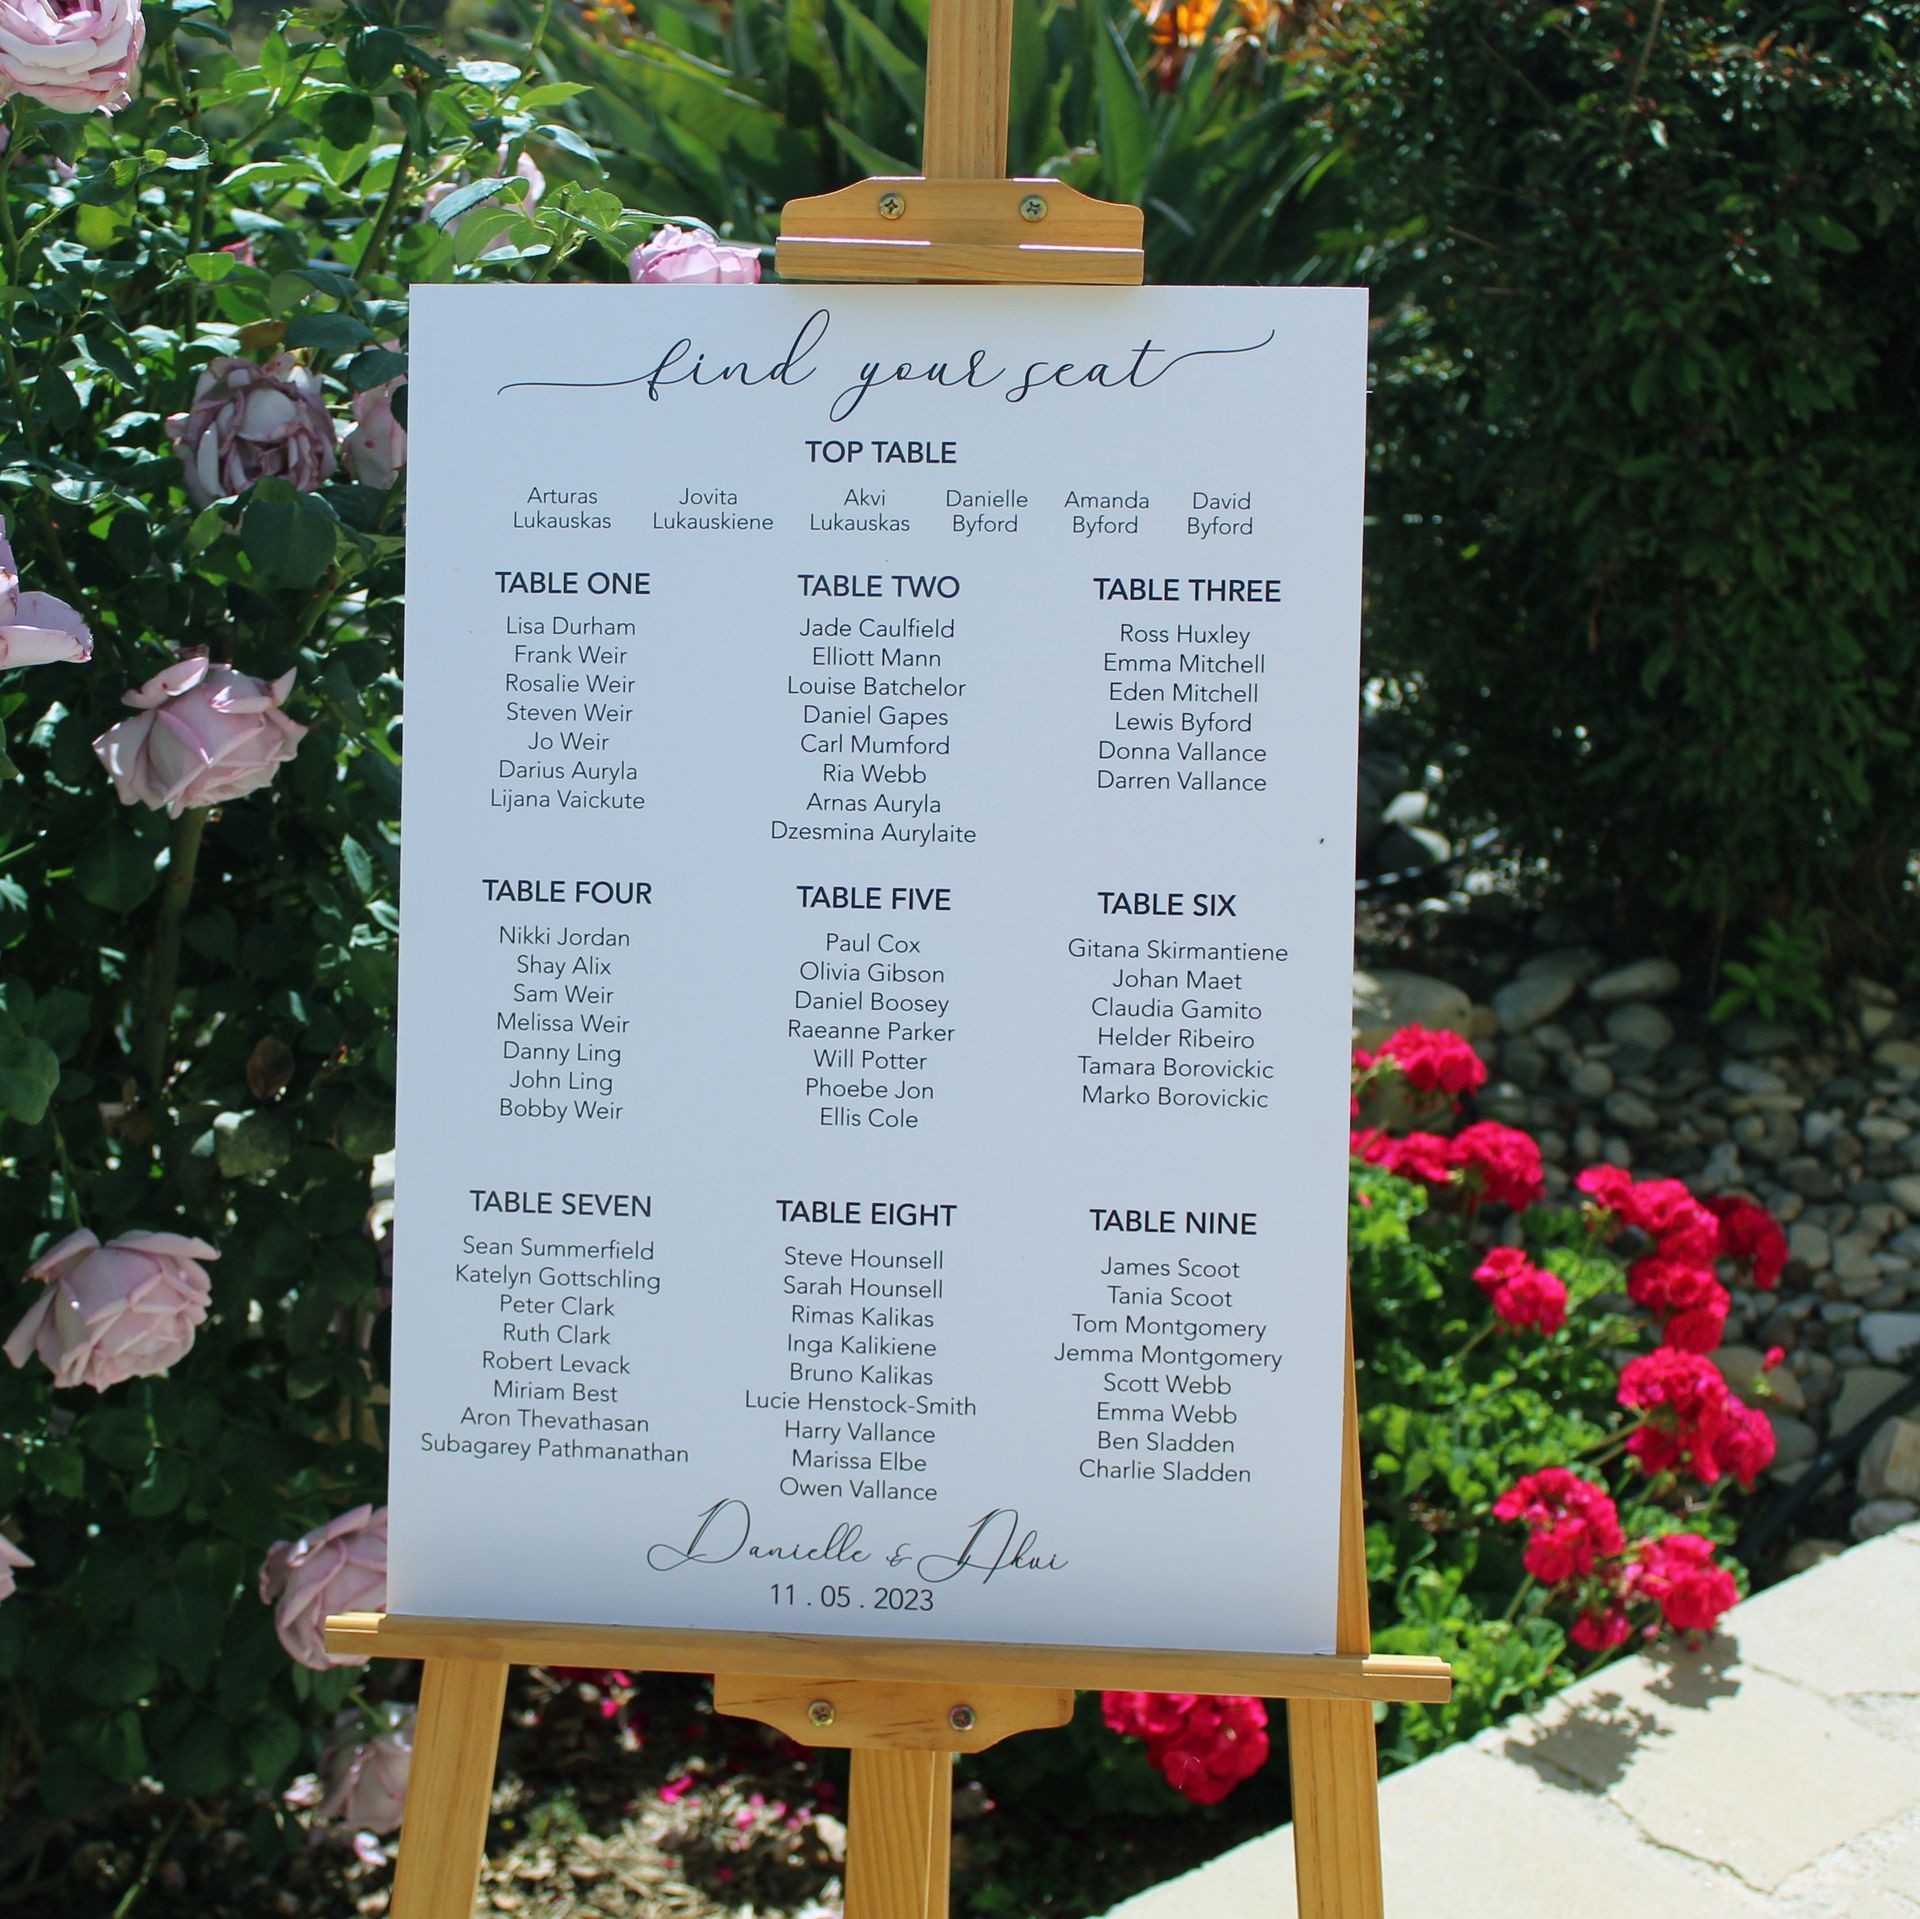 find your seat
TOP TABLE
Arturas Lukauskas
Jovita Lukauskiene
Akvi Lukauskas
Danielle Byford
Amanda Byford
David Byford
TABLE ONE
Lisa Durham
Frank Weir
Rosalie Weir
Steven Weir
Jo Weir
Darius Auryla
Lijana Vaickute
TABLE TWO
Jade Caulfield
Elliott Mann
Louise Batchelor
Daniel Gapes
Carl Mumford
Ria Webb
Arnas Auryla
Dzesmina Aurylaite
TABLE THREE
Ross Huxley
Emma Mitchell
Eden Mitchell
Lewis Byford
Donna Vallance
Darren Vallance
TABLE FOUR
Nikki Jordan
Shay Alix
Sam Weir
Melissa Weir
Danny Ling
John Ling
Bobby Weir
TABLE FIVE
Paul Cox
Olivia Gibson
Daniel Boosey
Raeanne Parker
Will Potter
Phoebe Jon
Ellis Cole
TABLE SIX
Gitana Skirmantiene
Johan Maet
Claudia Gamito
Helder Ribeiro
Tamara Borovickic
Marko Borovickic
TABLE SEVEN
Sean Summerfield
Katelyn Gottschling
Peter Clark
Ruth Clark
Robert Levack
Miriam Best
Aron Thevathasan
Subagarey Pathmanathan
TABLE EIGHT
Steve Hounsell
Sarah Hounsell
Rimas Kalikas
Inga Kalikiene
Bruno Kalikas
Lucie Henstock-Smith
Harry Vallance
Marissa Elbe
Owen Vallance
TABLE NINE
James Scoot
Tania Scoot
Tom Montgomery
Jemma Montgomery
Scott Webb
Emma Webb
Ben Sladden
Charlie Sladden
Danielle & Akvi
11 . 05 . 2023